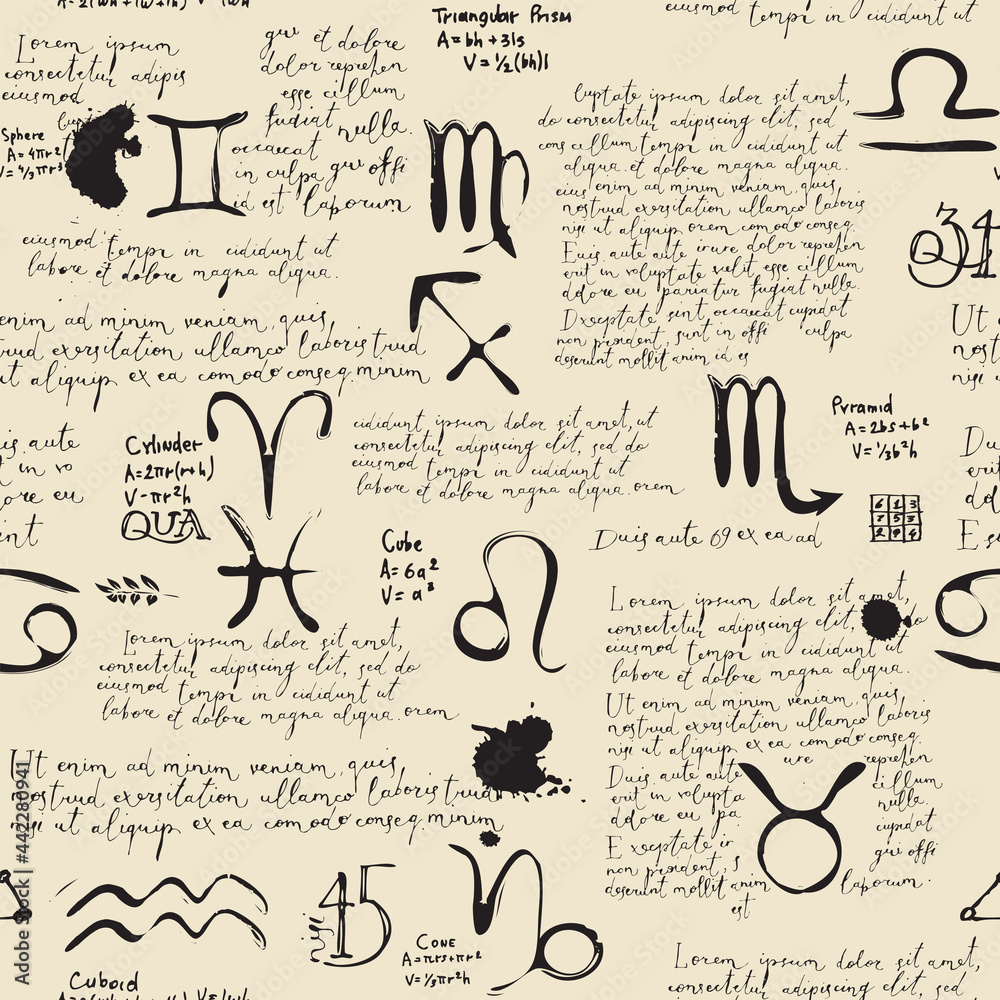 Triangular Prism
A=bh+3ls
V=½(bh)l
eiusmod tempi in cididunt ut
Lorem ipsum
consectetur adipis
eiusmod
Sphere
A=4πr²
V=⁴/₃πr³
gui et dolore
dolor reprehen
esse cillum
fugiat nulla.
occaecat
in culpa gui offi
id est laborum
luptate ipsum dolor sit amet,
do consectetur adipiscing elit, sed
cons cillum tempi in cididunt ut
aliqua. et dolore magna aliqua.
eius enim ad minim veniam, quis
nostrud exersitation ullamco laboris
nisi ut aliquip orem comodo conseq.
Euis aute aute irure dolor reprehen
erit in voluptate velit esse cillum
dolore eu pariatur fugiat nulla.
Dxceptate sint occaecat cupidat
non proident, sunt in offi culpa
deserunt mollit anim id es
34
eiusmod tempi in cididunt ut
labore et dolore magna aliqua.
enim ad minim veniam, quis
trud exersitation ullamco laboris trud
ut aliquip ex ea comodo conseq. minim
Ut
nost
nisi
is aute
t in vo
ore eu
nt
Cylinder
A=2πr(r+h)
V-πr²h
QUA
cididunt ipsum dolor sit amet, ut
consectetur adipiscing elit, sed do
eiusmod tempi in cididunt ut
labore et dolore magna aliqua. orem
Pyramid
A=2bs+b²
V=⅓b²h
6 1 3
7 5 3
2 9 4
Cube
A=6a²
V=a³
Duis aute 69 ex ea ad
Lorem ipsum dolor sit amet,
consectetur adipiscing elit, sed do
eiusmod tempi in cididunt ut
labore et dolore magna aliqua. orem
Lorem ipsum dolor sit amet,
consectetur adipiscing elit, do
eiusmod tempi in cididunt ut
labore et dolore magna aliqua.
Ut enim ad minim veniam, quis
nostrud exersitation ullamco laboris
nisi ut aliquip ex ea comodo conseq.
Duis aute aute ure reprehen
erit in volupta cillum
dolore eu pa nulla.
Exceptate in cupidat
non proident, s gui offi
deserunt mollit anim laborum.
est
Ut enim ad minim veniam, quis
nostrud exersitation ullamco laboris trud
nisi ut aliquip ex ea comodo conseq. minim
nisi
45
Cone
A=πrs+πr²
V=⅓πr²h
Cuboid
Lorem ipsum dolor sit amet,
consectetur adipiscing elit,
eiusmod tempi in cididunt ut
Adobe Stock | #442280941
Adobe Stock